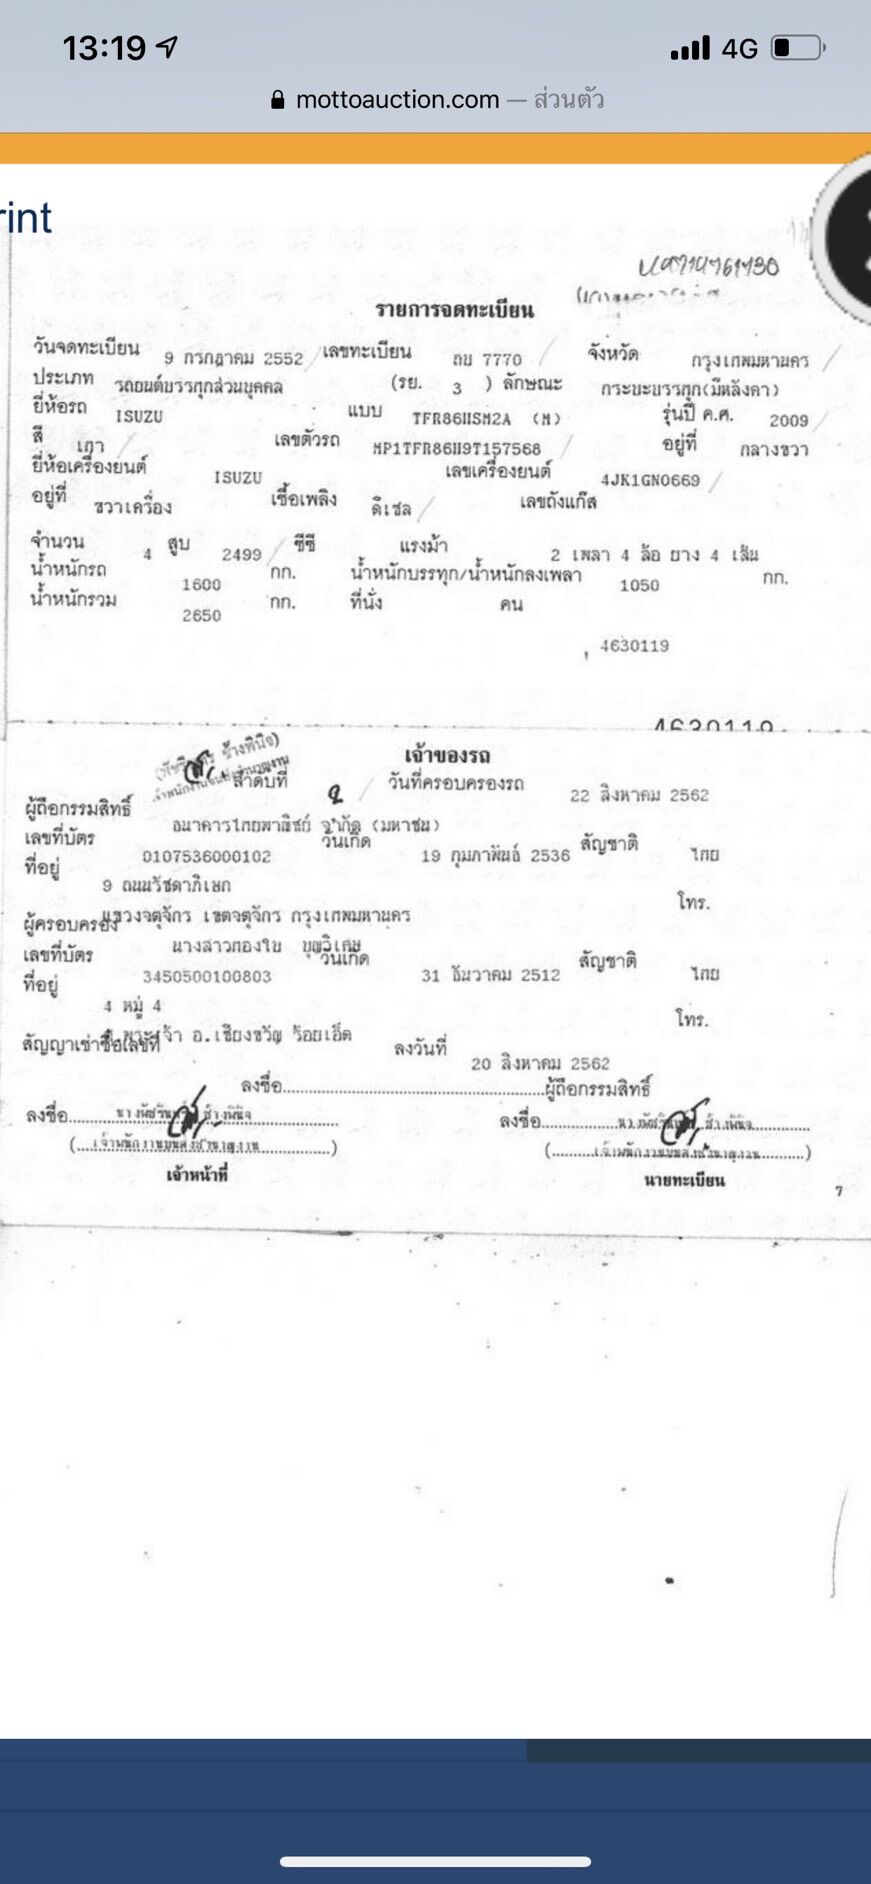 13:19
4G
mottoauction.com — ส่วนตัว
rint
รายการจดทะเบียน
วันจดทะเบียน 9 กรกฎาคม 2552 เลขทะเบียน ถบ 7770 จังหวัด กรุงเทพมหานคร
ประเภท รถยนต์บรรทุกส่วนบุคคล (รย. 3 ) ลักษณะ กระบะบรรทุก(มีหลังคา)
ยี่ห้อรถ ISUZU แบบ TFR86HSM2A (M) รุ่นปี ค.ศ. 2009
สี เทา เลขตัวรถ MP1TFR86H9T157568 อยู่ที่ กลางขวา
ยี่ห้อเครื่องยนต์ ISUZU เลขเครื่องยนต์ 4JK1GN0669
อยู่ที่ ขวาเครื่อง เชื้อเพลิง ดีเซล เลขถังแก๊ส
จำนวน 4 สูบ 2499 ซีซี แรงม้า 2 เพลา 4 ล้อ ยาง 4 เส้น
น้ำหนักรถ 1600 กก. น้ำหนักบรรทุก/น้ำหนักลงเพลา 1050 กก.
น้ำหนักรวม 2650 กก. ที่นั่ง คน
4630119
4630119
เจ้าของรถ
ลำดับที่ 2 วันที่ครอบครองรถ 22 สิงหาคม 2562
ผู้ถือกรรมสิทธิ์ ธนาคารไทยพาณิชย์ จำกัด (มหาชน)
เลขที่บัตร 0107536000102 วันเกิด 19 กุมภาพันธ์ 2536 สัญชาติ ไทย
ที่อยู่ 9 ถนนรัชดาภิเษก
แขวงจตุจักร เขตจตุจักร กรุงเทพมหานคร โทร.
ผู้ครอบครอง นางสาวทองใบ บุญวิเศษ
เลขที่บัตร 3450500100803 วันเกิด 31 ธันวาคม 2512 สัญชาติ ไทย
ที่อยู่ 4 หมู่ 4
อ.เชียงขวัญ ร้อยเอ็ด โทร.
สัญญาเช่าซื้อเลขที่ ลงวันที่ 20 สิงหาคม 2562
ลงชื่อ ผู้ถือกรรมสิทธิ์
ลงชื่อ ลงชื่อ
เจ้าหน้าที่ นายทะเบียน
7